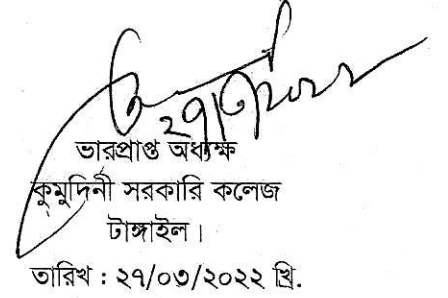 ২৭/৩/২০২২
ভারপ্রাপ্ত অধ্যক্ষ
কুমুদিনী সরকারি কলেজ
টাঙ্গাইল।
তারিখ : ২৭/০৩/২০২২ খ্রি.